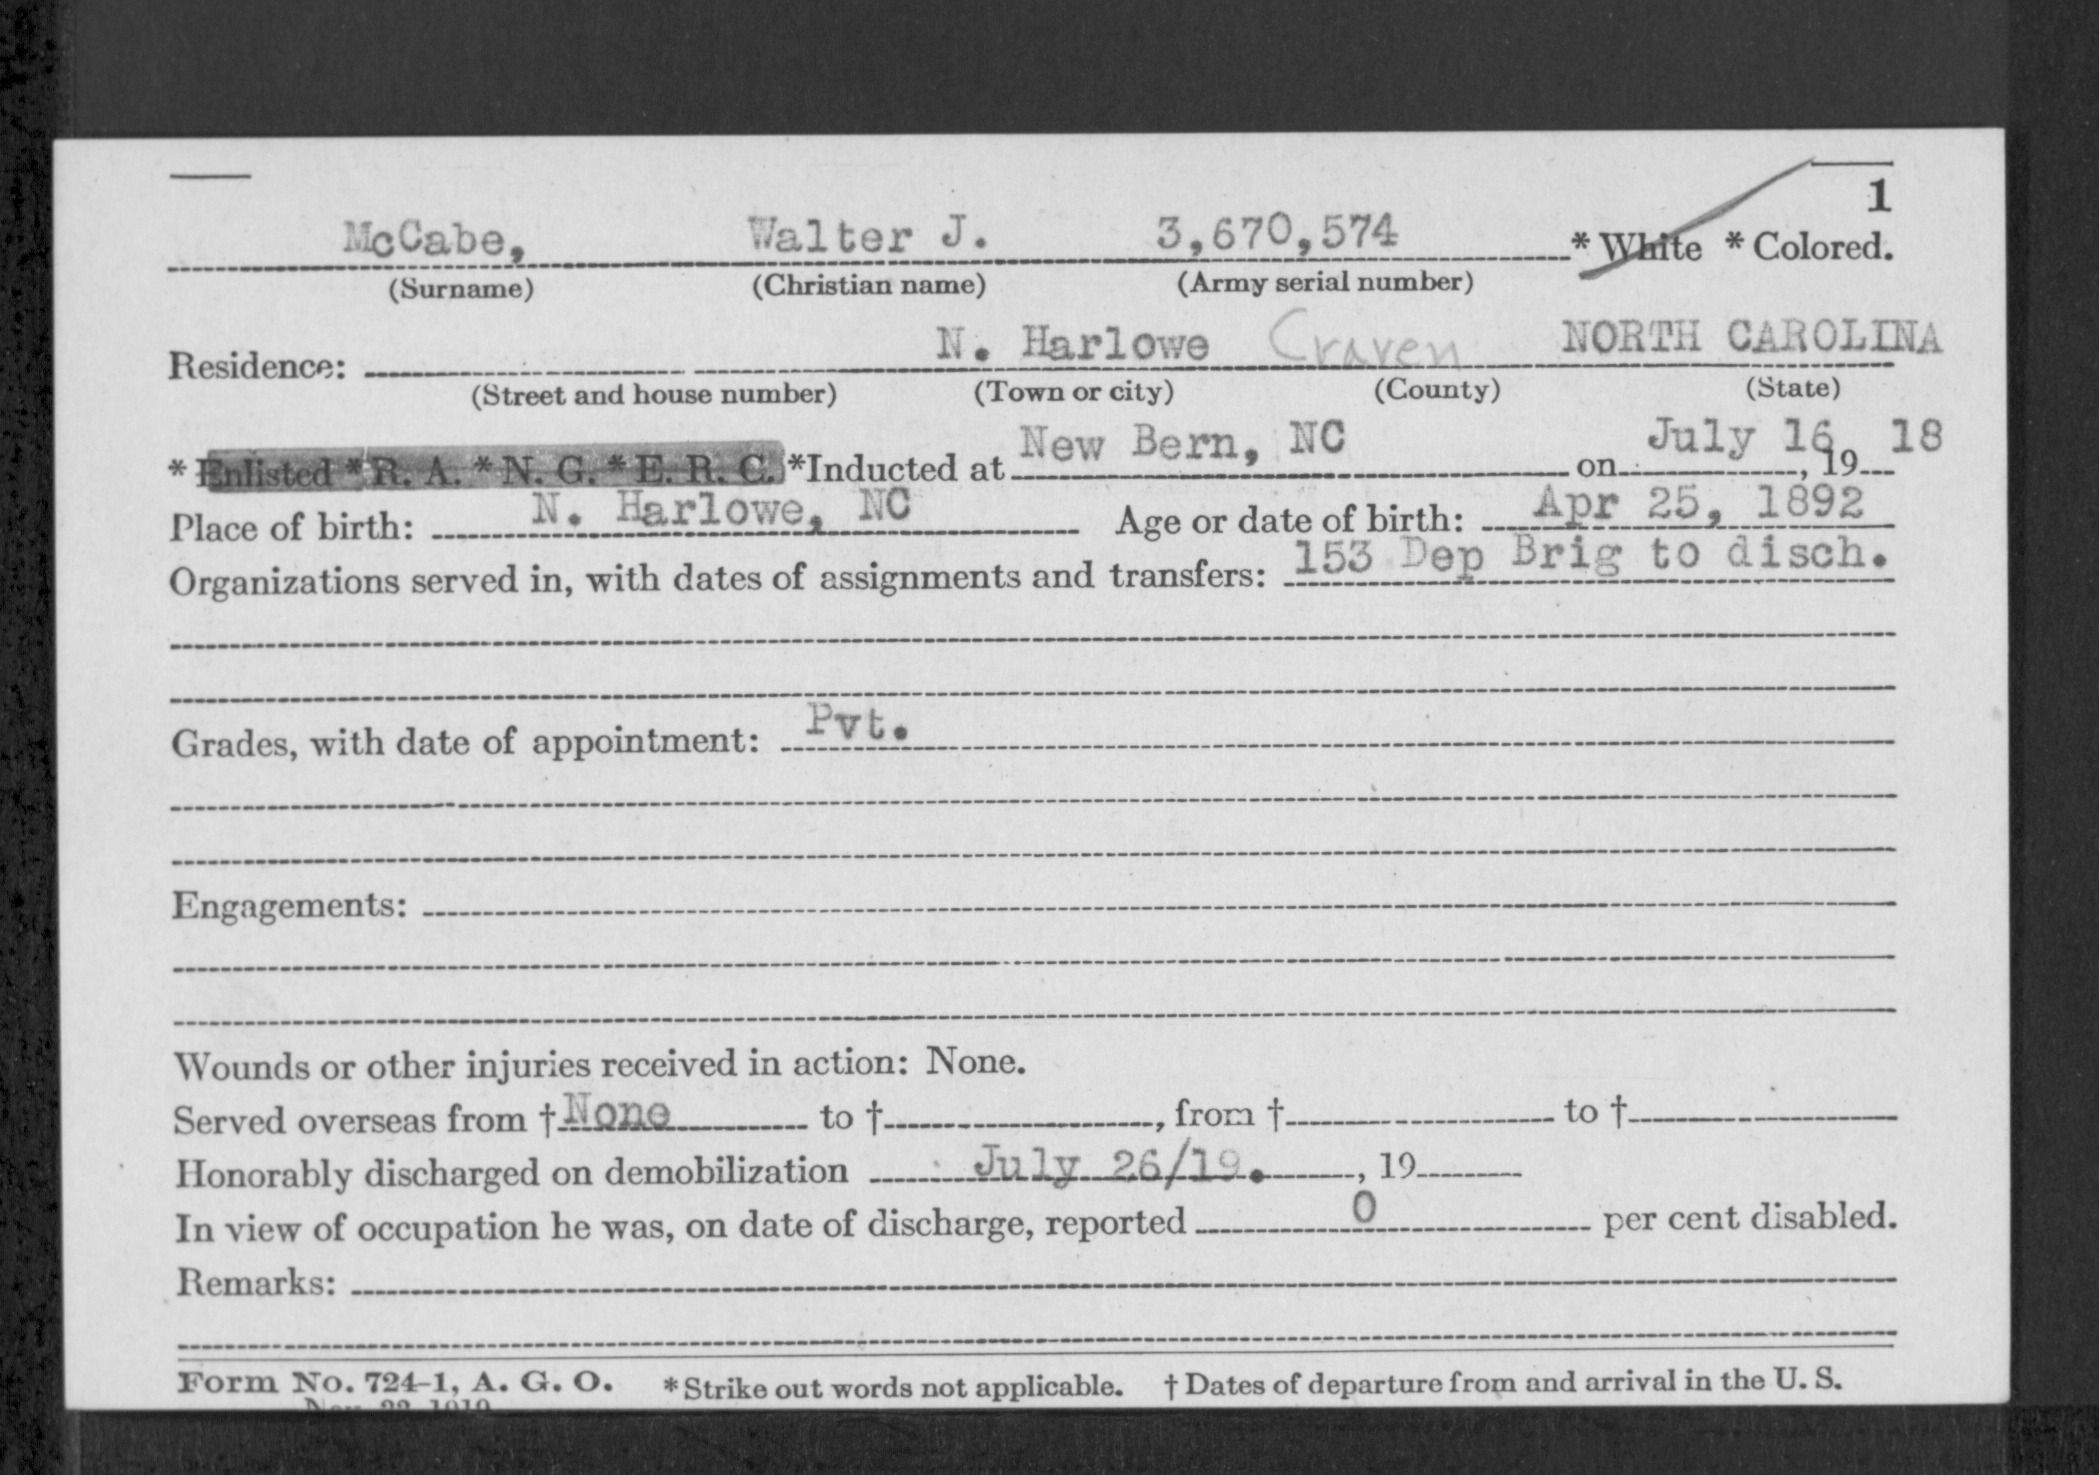 1
McCabe, Walter J. 3,670,574 * White * Colored.
(Surname) (Christian name) (Army serial number)
Residence: N. Harlowe Craven NORTH CAROLINA
(Street and house number) (Town or city) (County) (State)
* Enlisted * R. A. * N. G. * E. R. C. *Inducted at New Bern, NC on July 16, 19 18
Place of birth: N. Harlowe, NC Age or date of birth: Apr 25, 1892
Organizations served in, with dates of assignments and transfers: 153 Dep Brig to disch.
Grades, with date of appointment: Pvt.
Engagements:
Wounds or other injuries received in action: None.
Served overseas from † None to †, from † to †
Honorably discharged on demobilization July 26/19. , 19
In view of occupation he was, on date of discharge, reported 0 per cent disabled.
Remarks:
Form No. 724-1, A. G. O. * Strike out words not applicable. † Dates of departure from and arrival in the U. S.